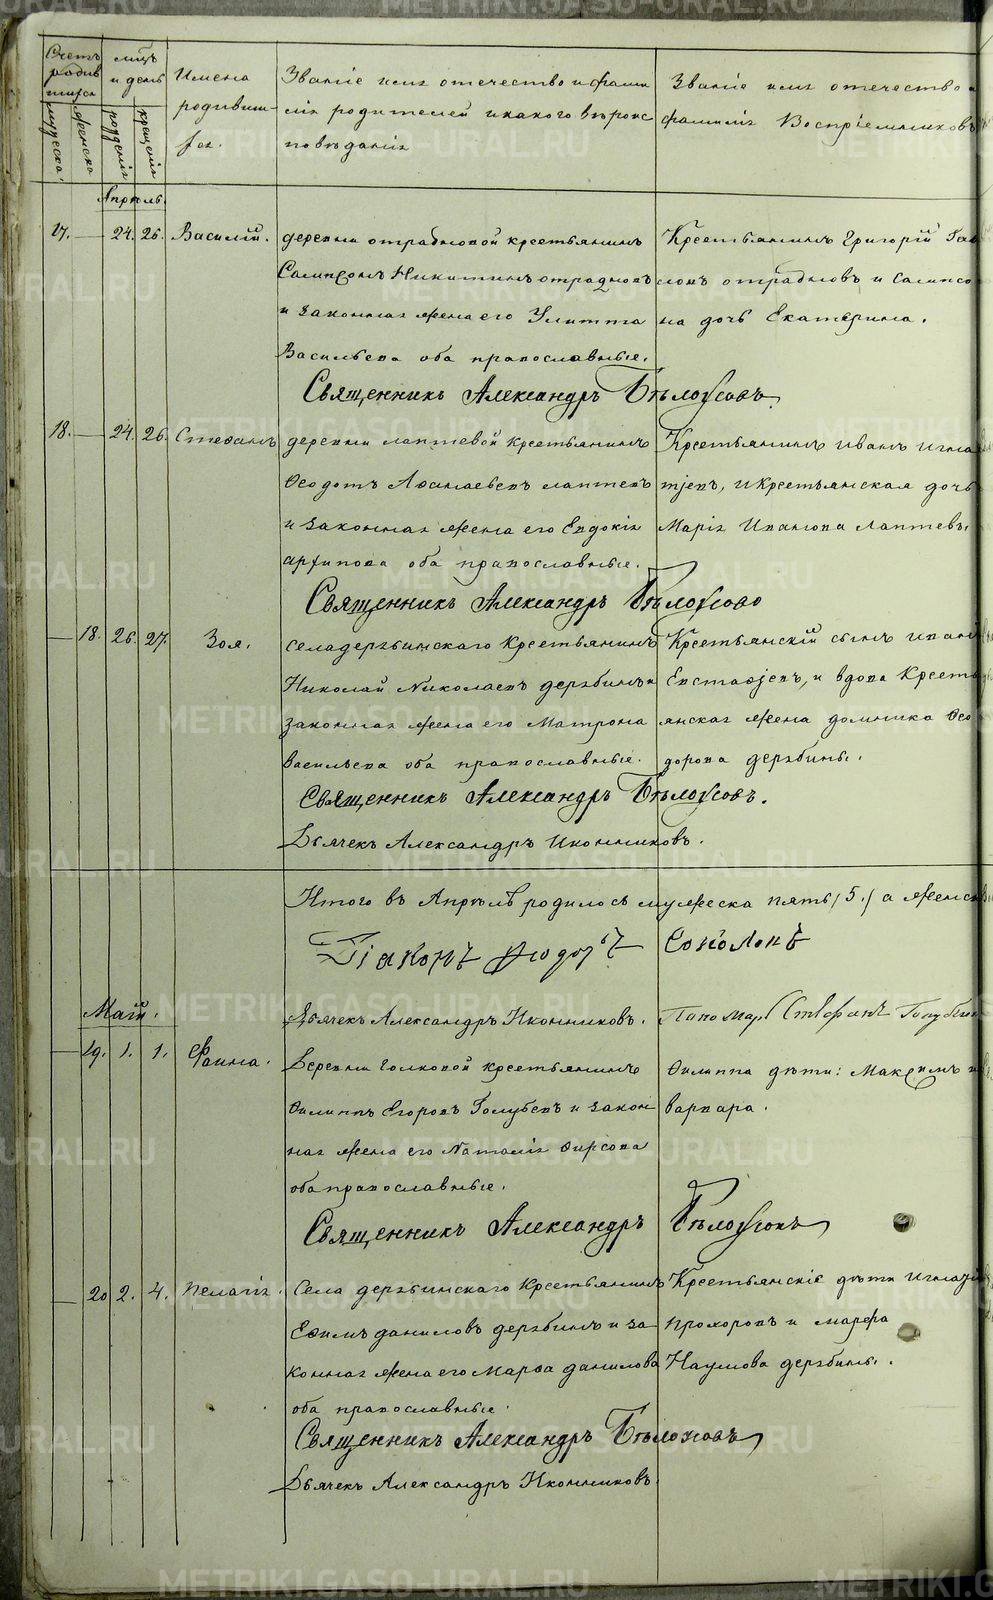 Счетъ родившихся
мѣсяцъ и день
Имена родившихся.
Званіе имя отечество и фамилія родителей и какого вѣроисповѣданія
Званіе имя отечество и фамилія Воспріемниковъ
мужеска.
женска
рожденія
крещенія
Апрель.
17. — 24. 26. Василій.
деревни отрадновой крестьянинъ
Сампсонъ Никитинъ отрадновъ
и законная жена его Улитта
Васильева оба православные.
Крестьянинъ Григорій
отрадновъ и Сампсо
на дочь Екатерина.
Священникъ Александръ Бѣлоусовъ
18. — 24. 26. Стефанъ
деревни лаптевой крестьянинъ
Ѳеодотъ Аѳанасьевъ лаптевъ
и законная жена его Евдокія
архипова оба православные.
Крестьянинъ иванъ игна
тіевъ, и крестьянская дочь
Марія Иванова Лаптевы
Священникъ Александръ Бѣлоусовъ
— 18. 26. 27. Зоя.
села дерябинскаго крестьянинъ
Николай Николаевъ дерябинъ и
законная жена его Матрона
васильева оба православные.
Крестьянскій сынъ иванъ
Евстафіевъ, и вдова Кресть
янская жена домника Ѳео
дорова дерябины.
Священникъ Александръ Бѣлоусовъ.
Дьячекъ Александръ Иконниковъ.
Итого въ Апрѣлѣ родилось мужеска пять (5.) а женска
Діаконъ Ѳеодоръ Соколовъ
Дьячекъ Александръ Иконниковъ. Пономарь Стефанъ
Маій.
— 19. 1. 1. Фаина.
Деревни голковой крестьянинъ
Филиппъ Егоровъ Голубевъ и закон
ная жена его Наталія Фирсова
оба православные.
Филиппа дѣти: Максимъ и
варвара.
Священникъ Александръ Бѣлоусовъ
— 20 2. 4. Пелагія.
Села дерябинскаго крестьянинъ
Ефимъ даниловъ дерябинъ и за
конная жена его Марѳа данилова
оба православные.
Крестьянскіе дѣти Игнатій
прохоровъ и марфа
Наумова дерябины.
Священникъ Александръ Бѣлоусовъ
Дьячекъ Александръ Иконниковъ.
METRIKI.GASO-URAL.RU